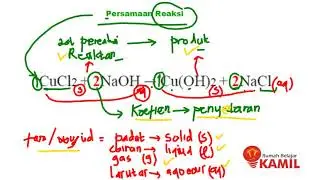 Persamaan Reaksi
zat pereaksi produk
Reaktan
1CuCl2 + 2NaOH → 1Cu(OH)2 + 2NaCl(aq)
(s) (aq) (s)
Koefisien → penyetaraan
fase/wujud = padat → solid (s)
cairan → liquid (l)
gas (g)
larutan → aqueous (aq)
Rumah Belajar
KAMIL